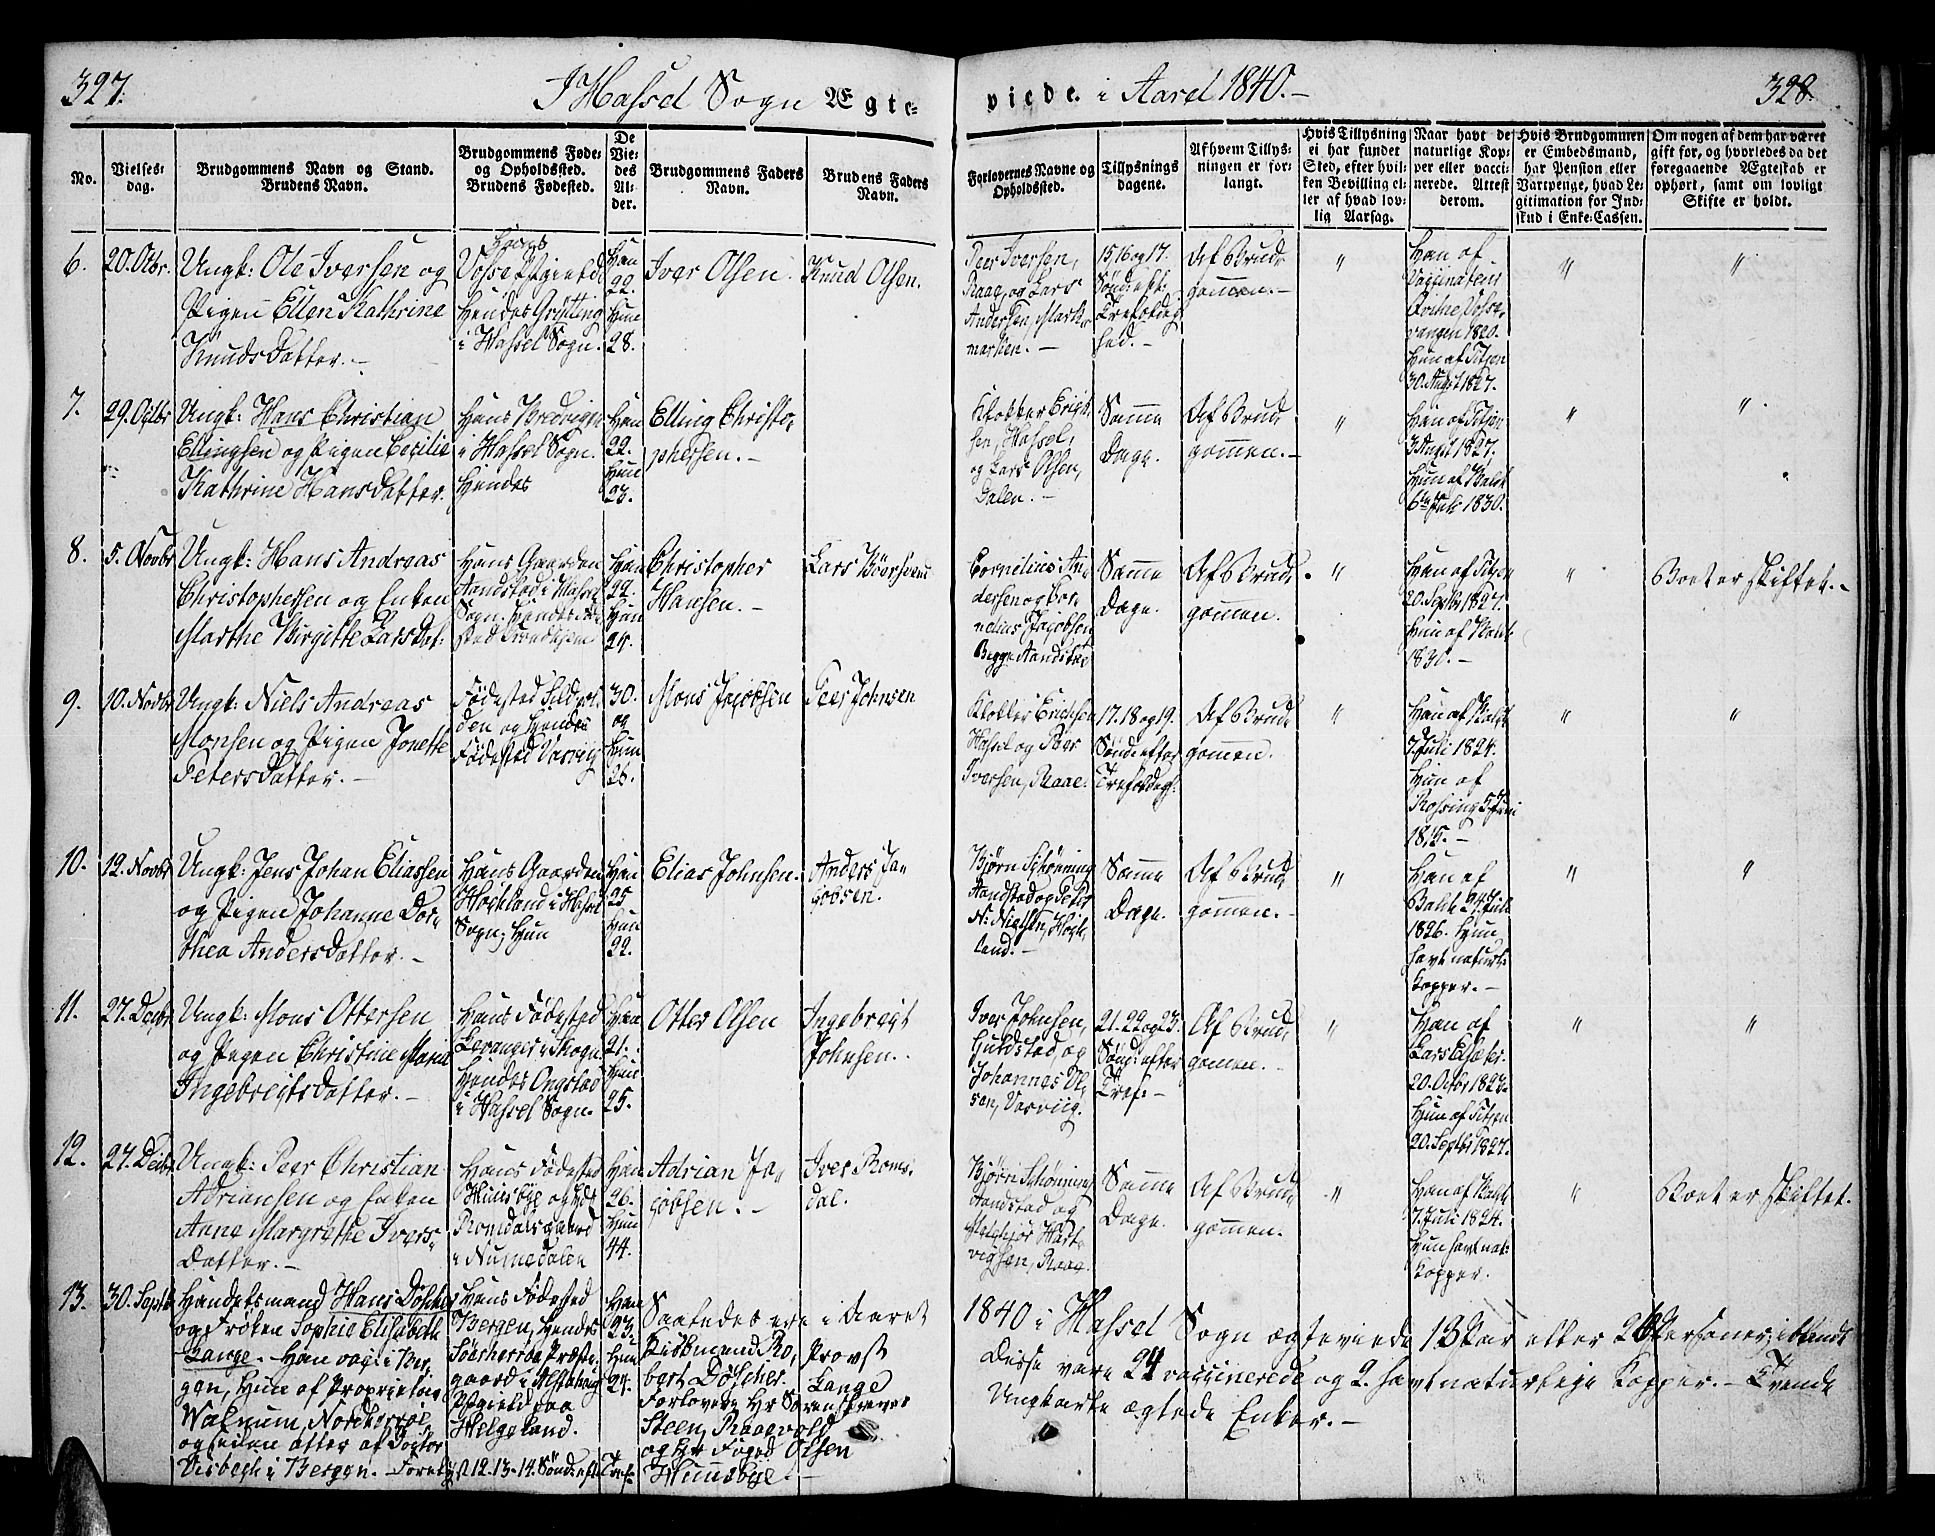 327.
I Hassel Sogn Ægte-
viede i Aaret 1840.-
328.
No.
Vielses-
dag.
Brudgommens Navn og Stand.
Brudens Navn.
Brudgommens Føde-
og Opholdssted.
Brudens Fødested.
De
Vie-
des
Al-
der.
Brudgommens Faders
Navn.
Brudens Faders
Navn.
Forlovernes Navne og
Opholdssted.
Tillysnings
dagene.
Af hvem Tillys-
ningen er for-
langt.
Hvis Tillysning
ei har fundet
Sted, efter hvil-
ken Bevilling el-
ler af hvad lov-
lig Aarsag.
Naar havt de
naturlige Kop-
per eller vacci-
nerede. Attest
derom.
Hvis Brudgommen
er Embedsmand,
har Pension eller
Vartpenge, hvad Le-
gitimation for Ind-
skud i Enke-Cassen.
Om nogen af dem har været
gift før, og hvorledes da det
foregaaende Ægteskab er
ophørt, samt om lovligt
Skifte er holdt.
6.
20. Otbr.
Ungk: Ole Iversen og
Pigen Ellen Kathrine
Knudsdatter.-
Hans
Vosse Pgield
Hendes Grytting
i Hassel Sogn.
Han
22.
Hun
28.
Iver Olsen.
Knud Olsen.
Peer Iversen,
Raae, og Lars
Andersen,
15, 16 og 17.
Sønd: eft:
Trefoldig
hed.-
Af Brud
gommen.-
"
Han af
Vaccinateur
vangen 1820.
Hun af Titjen
30. Augst 1827.
"
"
7.
29. Octbr
Ungk: Hans Christian
Ellingsen og Pigen Cecilie
Kathrine Hansdatter.
Hans
i Hassel Sogn.
Hendes
Han
22.
Hun
23.
Elling Christo-
phersen.-
Klokker Erich-
sen, Hassel,
og Lars Olsen,
Dalen.-
Samme
Dage.
Af Brud
gommen.-
"
Han af Titjen
3 Augst 1827.
Hun af Baldt
6te Juli 1830.
"
"
8.
5. Novbr
Ungk: Hans Andreas
Christophersen og Enken
Marthe Birgitte Larsdat:
Hans Gaarden
Aandstad i Hassel
Sogn. Hendes Føde
sted Trondhjem
Han
22.
Hun
24.
Christopher
Hansen.-
Lars Børsvend
Cornelius An-
dersen og Cor-
nelius Jacobsen
Begge Aandstad
Samme
Dage.
Af Brud
gommen.
"
Han af Titjen
20. Septbr 1827.
Hun af Baldt
1830.-
"
Boet er skiftet.-
9.
10. Novbr
Ungk: Niels Andreas
Monsen og Pigen Jonette
Petersdatter.-
Fødested
den og Hendes
Fødested Vasviig
30.
og
Hun
26.
Mons Jacobsen
Peer Johnsen
Klokker Erichsen
Hassel og Peer
Iversen, Raae.
17. 18 og 19.
Sønd: efter
Trefoldigh:
Af Brud
gommen.
"
Han af Baldt
7. Juli 1824.
Hun af
Rossing 5. Juni
1815.-
"
"
10.
12. Novbr
Ungk: Jens Johan Eliassen
og Pigen Johanne Dor-
thea Andersdatter.-
Hans Gaarden
Hockland i Hassel
Sogn, Hun
Han
25
Hun
22.
Elias Johnsen.
Anders Ja-
cobsen.
Bjørn Schønning
Aandstad og Peter
N: Nielsen, Hock-
land.-
Samme
Dage.
Af Brud
gommen.-
"
Han af
Baldt 24. Juli
1826. Hun
havt naturl:
Kopper.-
"
"
11.
27. Decbr
Ungk: Mons Ottersen
og Pigen Christine Marie
Ingebreigtsdatter.-
Hans Fødested
Leranger i Skogn
Hendes Ongstad
i Hassel Sogn.
Han
21.
Hun
25.
Otter Olsen
Ingebreigt
Johnsen.
Iver Johnsen,
Guldstad og
Johannes Ol-
sen, Vasviig.
21. 22 og 23.
Sønd: efter
Tref:-
Af Brud
gommen.-
"
Han af
Lars
20. Octbr 1823.
Hun af Titjen
20. Septbr 1827.
"
"
12.
27. Decbr
Ungk: Peer Christian
Adriansen og Enken
Anne Margrethe Ivers-
datter.-
Hans Fødested
Romdalsgaard
i Nummedalen
Han
26.
Hun
44.
Adrian Ja-
cobsen.-
Iver Roms-
dal.
Bjørn Schønning
Aandstad og
Melchjør Hart-
vigsen, Raae.
Samme
Dage.
Af Brud
gommen.
"
Han af Baldt
7. Juli 1824.
Hun havt nat:
Kopper.
"
Boet er skiftet.
13.
30. Septb
Handelsmand Hans Döscher
og Frøken Sophie Elisabeth
Lange. Han vacc: i Ber-
gen, Hun af Proprietair
Walnum, Nordherrøe
og siden efter af Doctor
Visbech i Bergen.- Forelyst 12. 13-14. Sønd: eft: Tref:
Hans Fødested
Bergen, Hendes
Sørherrøe Præste-
gaard i Alstahoug
Pgield paa
Helgeland.
Han
23.
Hun
24.
Kiøbmand Ro-
bert Döscher.
Provst
Lange
Forlovere Hr Sorenskriver
Steen, Raaevold
og Hr Foged Olsen
Saaledes ere i Aaret
1840 i Hassel Sogn ægteviede 13 Par eller 26 Personer, iblandt
Disse vare 24 vaccinerede og 2. havt naturlige Kopper.- Tvende
Ungkarle ægtede Enker.-